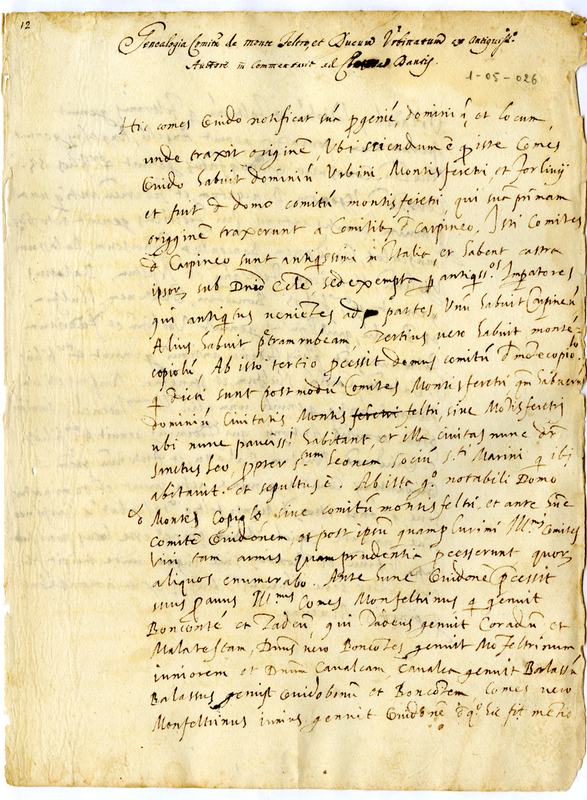 12
Genealogia Comitũ de monte feltro, et Ducum Vrbinatum ex Antiquiss.º
Auctore in Commentariis ad Dantis.
1-05-026
Hic comes Guido notificat suã progeniẽ, dominiũ, et locum
unde traxit originẽ. Vbi sciendum ẽ q iste Comes
Guido habuit dominiũ Vrbini, Montisferetri et Forliuij
et fuit d domo comitũ montisferetri qui suã primam
origginẽ traxerunt a Comitib9 d Carpineo. Isti Comites
d Carpineo sunt antiquissimi in Italia, et habent castra
ipsor, sub Dnio Eccle sed exempta p antiquiss.os Imperatores
qui antiquius venientes ad partes, Vnũ habuit Carpineũ
Alius habuit petram rubeam, Tertius vero habuit montẽ
copiolũ. Ab isto tertio pcessit domus comitũ d mõte copiolo
q dicti sunt postmodũ Comites Montisferetri qm habuerũt
dominiũ Ciuitatis Montis feretri feltri, siue Mõtisferetri
ubi nunc pauciss.i habitant et illa ciuitas nunc dr
sanctus leo propter scum Leonem sociũ s.ti Marini q ibi
abitauit et sepultus ẽ. Ab ista g.º notabili Domo
Montis Copioli, siue comitũ montisfeltri, et ante hũc
comitẽ Guidonem, et post ipsũ quamplurimi Ill.mi Comites
viri tam armis quam prudentia pcesserunt quor
aliquos enumerabo. Ante hunc Guidonẽ pcessit
suus pauus Ill.mus Comes Monfeltrinus q genuit
Boncontẽ et Tadeũ, qui Tadeus genuit Coradũ et
Malatestam, Dnus vero Boncõtes genuit Mõfeltrinum
iuniorem et Dnum Caualcam, Caualca genuit Balassũ
Balassus genuit Guidobonũ et Boncõtem. Comes vero
Monfeltrinus iunius genuit Guidonẽ d q.º hic fit mẽtio